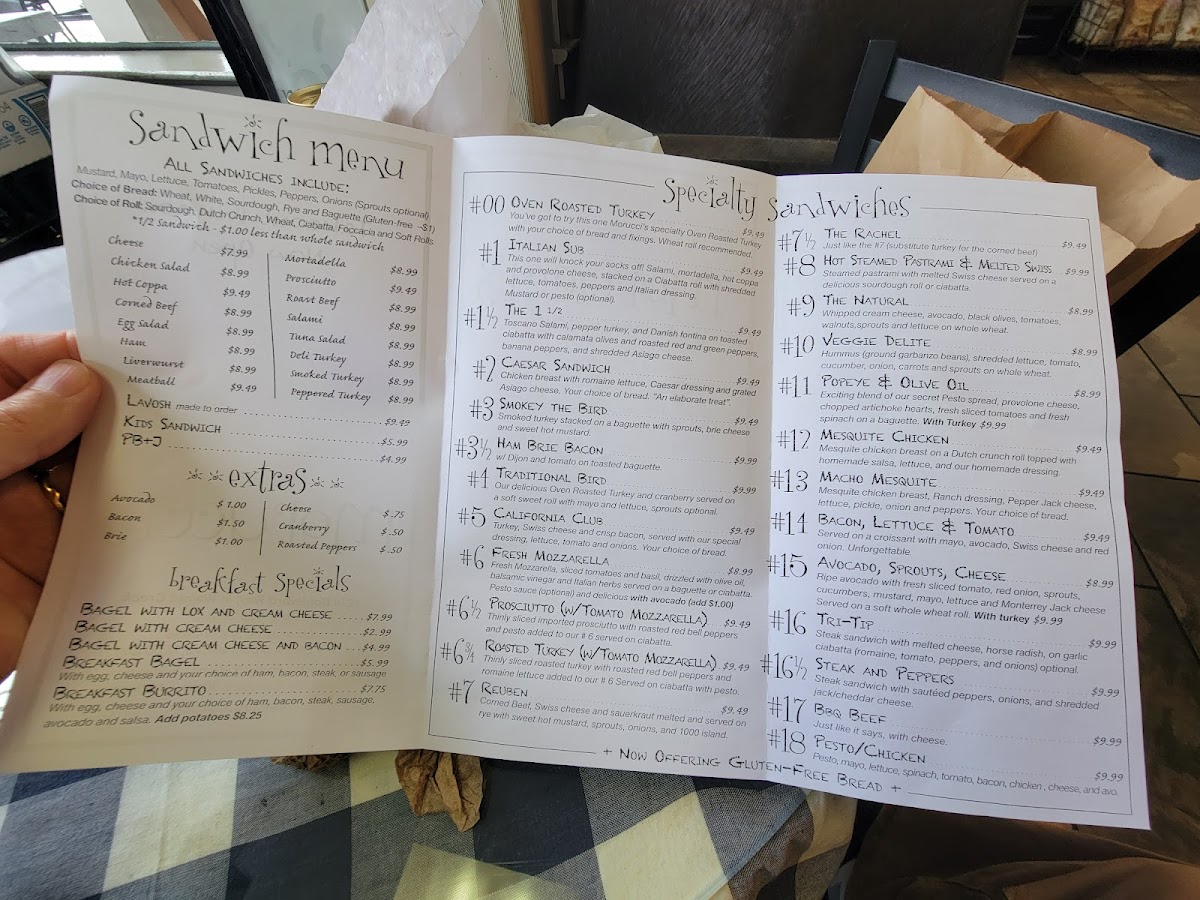 Sandwich menu
All Sandwiches Include:
Mustard, Mayo, Lettuce, Tomatoes, Pickles, Peppers, Onions (Sprouts optional)
Choice of Bread: Wheat, White, Sourdough, Rye and Baguette (Gluten-free ~$1)
Choice of Roll: Sourdough, Dutch Crunch, Wheat, Ciabatta, Foccacia and Soft Rolls
*1/2 Sandwich - $1.00 less than whole sandwich
Cheese $7.99
Chicken Salad $8.99
Hot Coppa $9.49
Corned Beef $8.99
Egg Salad $8.99
Ham $8.99
Liverwurst $8.99
Meatball $9.49
Mortadella $8.99
Prosciutto $9.49
Roast Beef $8.99
Salami $8.99
Tuna Salad $8.99
Deli Turkey $8.99
Smoked Turkey $8.99
Peppered Turkey $8.99
Lavosh made to order $9.49
Kids Sandwich $5.99
PB+J $4.99
extras
Avocado $1.00
Bacon $1.50
Brie $1.00
Cheese $.75
Cranberry $.50
Roasted Peppers $.50
breakfast specials
Bagel with lox and cream cheese $7.99
Bagel with cream cheese $2.99
Bagel with cream cheese and bacon $4.99
Breakfast Bagel $5.99
With egg, cheese and your choice of ham, bacon, steak, or sausage
Breakfast Burrito $7.75
With egg, cheese and your choice of ham, bacon, steak, sausage,
avocado and salsa. Add potatoes $8.25
Specialty Sandwiches
#00 Oven Roasted Turkey $9.49
You've got to try this one Morucci's specialty Oven Roasted Turkey
with your choice of bread and fixings. Wheat roll recommended.
#1 Italian Sub $9.49
This one will knock your socks off! Salami, mortadella, hot coppa
and provolone cheese, stacked on a Ciabatta roll with shredded
lettuce, tomatoes, peppers and Italian dressing.
Mustard or pesto (optional).
#1½ The 1 1/2 $9.49
Toscano Salami, pepper turkey, and Danish fontina on toasted
ciabatta with calamata olives and roasted red and green peppers,
banana peppers, and shredded Asiago cheese.
#2 Caesar Sandwich $9.49
Chicken breast with romaine lettuce, Caesar dressing and grated
Asiago cheese. Your choice of bread. "An elaborate treat".
#3 Smokey the Bird $9.49
Smoked turkey stacked on a baguette with sprouts, brie cheese
and sweet hot mustard.
#3½ Ham Brie Bacon $9.99
w/ Dijon and tomato on toasted baguette.
#4 Traditional Bird $9.99
Our delicious Oven Roasted Turkey and cranberry served on
a soft sweet roll with mayo and lettuce, sprouts optional.
#5 California Club $9.49
Turkey, Swiss cheese and crisp bacon, served with our special
dressing, lettuce, tomato and onions. Your choice of bread.
#6 Fresh Mozzarella $8.99
Fresh Mozzarella, sliced tomatoes and basil, drizzled with olive oil,
balsamic vinegar and Italian herbs served on a baguette or ciabatta.
Pesto sauce (optional) and delicious with avocado (add $1.00)
#6½ Prosciutto (w/Tomato Mozzarella) $9.49
Thinly sliced imported prosciutto with roasted red bell peppers
and pesto added to our # 6 served on ciabatta.
#6¾ Roasted Turkey (w/Tomato Mozzarella) $9.49
Thinly sliced roasted turkey with roasted red bell peppers and
romaine lettuce added to our # 6 Served on ciabatta with pesto.
#7 Reuben $9.49
Corned Beef, Swiss cheese and sauerkraut melted and served on
rye with sweet hot mustard, sprouts, onions, and 1000 island.
#7½ The Rachel $9.49
Just like the #7 (substitute turkey for the corned beef)
#8 Hot Steamed Pastrami & Melted Swiss $9.99
Steamed pastrami with melted Swiss cheese served on a
delicious sourdough roll or ciabatta.
#9 The Natural $8.99
Whipped cream cheese, avocado, black olives, tomatoes,
walnuts, sprouts and lettuce on whole wheat.
#10 Veggie Delite $8.99
Hummus (ground garbanzo beans), shredded lettuce, tomato,
cucumber, onion, carrots and sprouts on whole wheat.
#11 Popeye & Olive Oil $8.99
Exciting blend of our secret Pesto spread, provolone cheese,
chopped artichoke hearts, fresh sliced tomatoes and fresh
spinach on a baguette. With Turkey $9.99
#12 Mesquite Chicken $9.49
Mesquite chicken breast on a Dutch crunch roll topped with
homemade salsa, lettuce, and our homemade dressing.
#13 Macho Mesquite $9.49
Mesquite chicken breast, Ranch dressing, Pepper Jack cheese,
lettuce, pickle, onion and peppers. Your choice of bread.
#14 Bacon, Lettuce & Tomato $9.49
Served on a croissant with mayo, avocado, Swiss cheese and red
onion. Unforgettable.
#15 Avocado, Sprouts, Cheese $8.99
Ripe avocado with fresh sliced tomato, red onion, sprouts,
cucumbers, mustard, mayo, lettuce and Monterrey Jack cheese
Served on a soft whole wheat roll. With turkey $9.99
#16 Tri-Tip $9.99
Steak sandwich with melted cheese, horse radish, on garlic
ciabatta (romaine, tomato, peppers, and onions) optional.
#16½ Steak and Peppers $9.99
Steak sandwich with sautéed peppers, onions, and shredded
jack/cheddar cheese.
#17 BBQ Beef $9.99
Just like it says, with cheese.
#18 Pesto/Chicken $9.99
Pesto, mayo, lettuce, spinach, tomato, bacon, chicken, cheese, and avo.
+ Now Offering Gluten-Free Bread +